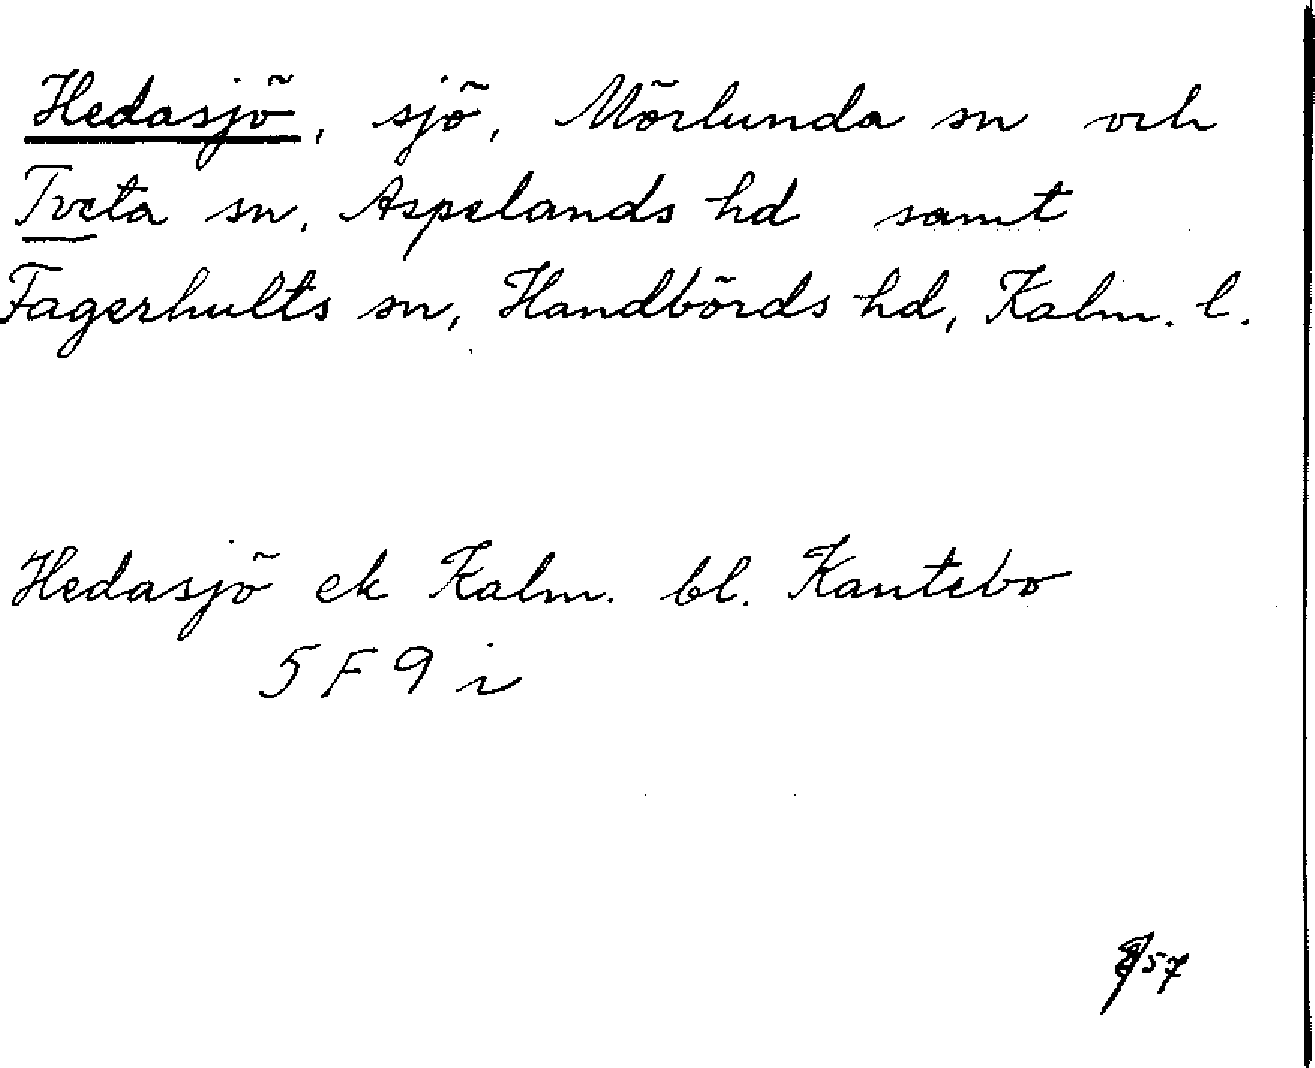 Hedasjö, sjö, Mörlunda sn och
Tveta sn, Aspelands hd samt
Fagerhults sn, Handbörds hd, Kalm. l.
Hedasjö ek Kalm. bl. Kantebo
5 F 9 i
57